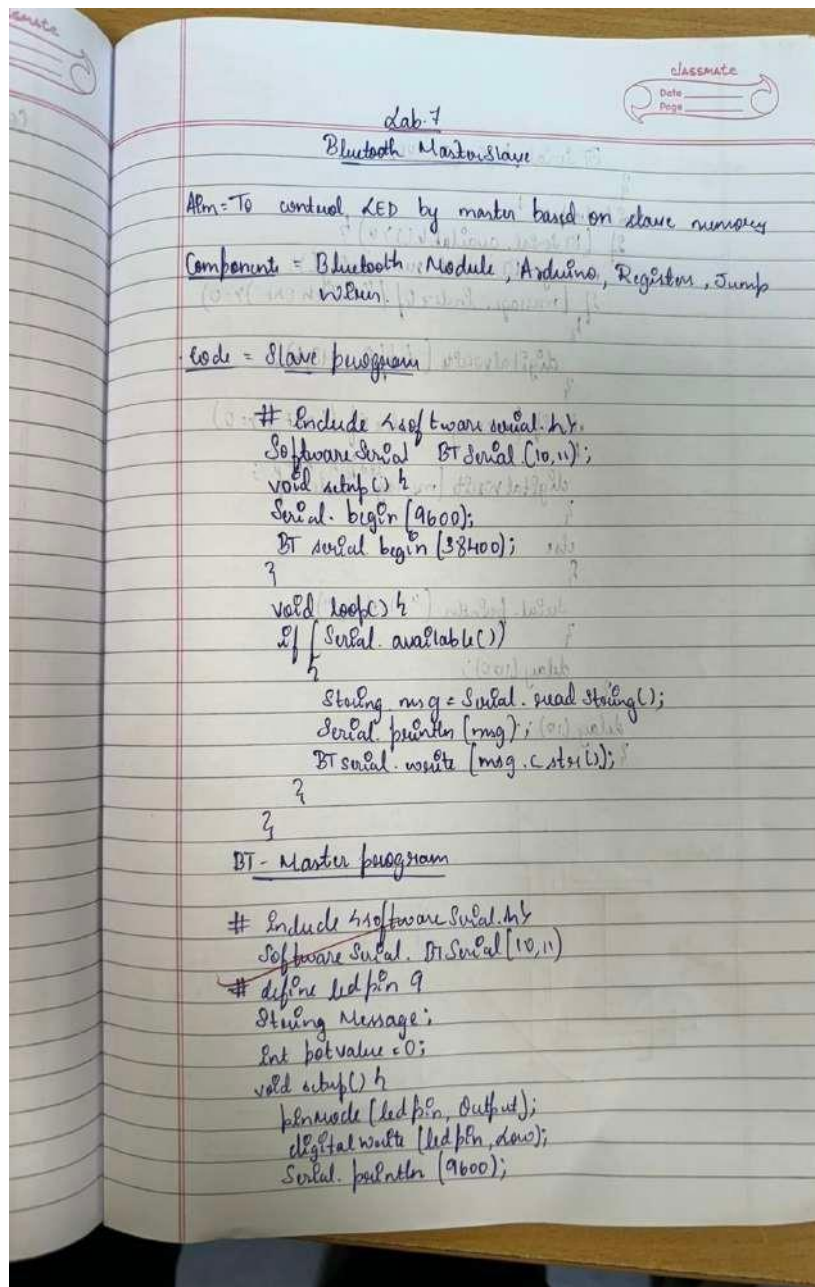 classmate
Date
Page
Lab-7
Bluetooth Master Slave
Aim = To control LED by master based on slave memory
Components = Bluetooth Module, Arduino, Registers, Jump
wires.
Code = Slave program
# include <software serial.h>
Software Serial BT Serial (10,11);
void setup() {
Serial. begin (9600);
BT serial begin (38400);
}
void loop() {
if (Serial. available())
{
String msg = Serial. read String();
Serial. println (msg);
BT serial. write (msg.c str());
}
}
BT - Master program
# include <software Serial.h>
Software Serial. BT Serial (10,11)
# define led pin 9
String Message;
int potvalue = 0;
void setup() {
pinMode (led pin, Output);
digital write (led pin, Low);
Serial. println (9600);